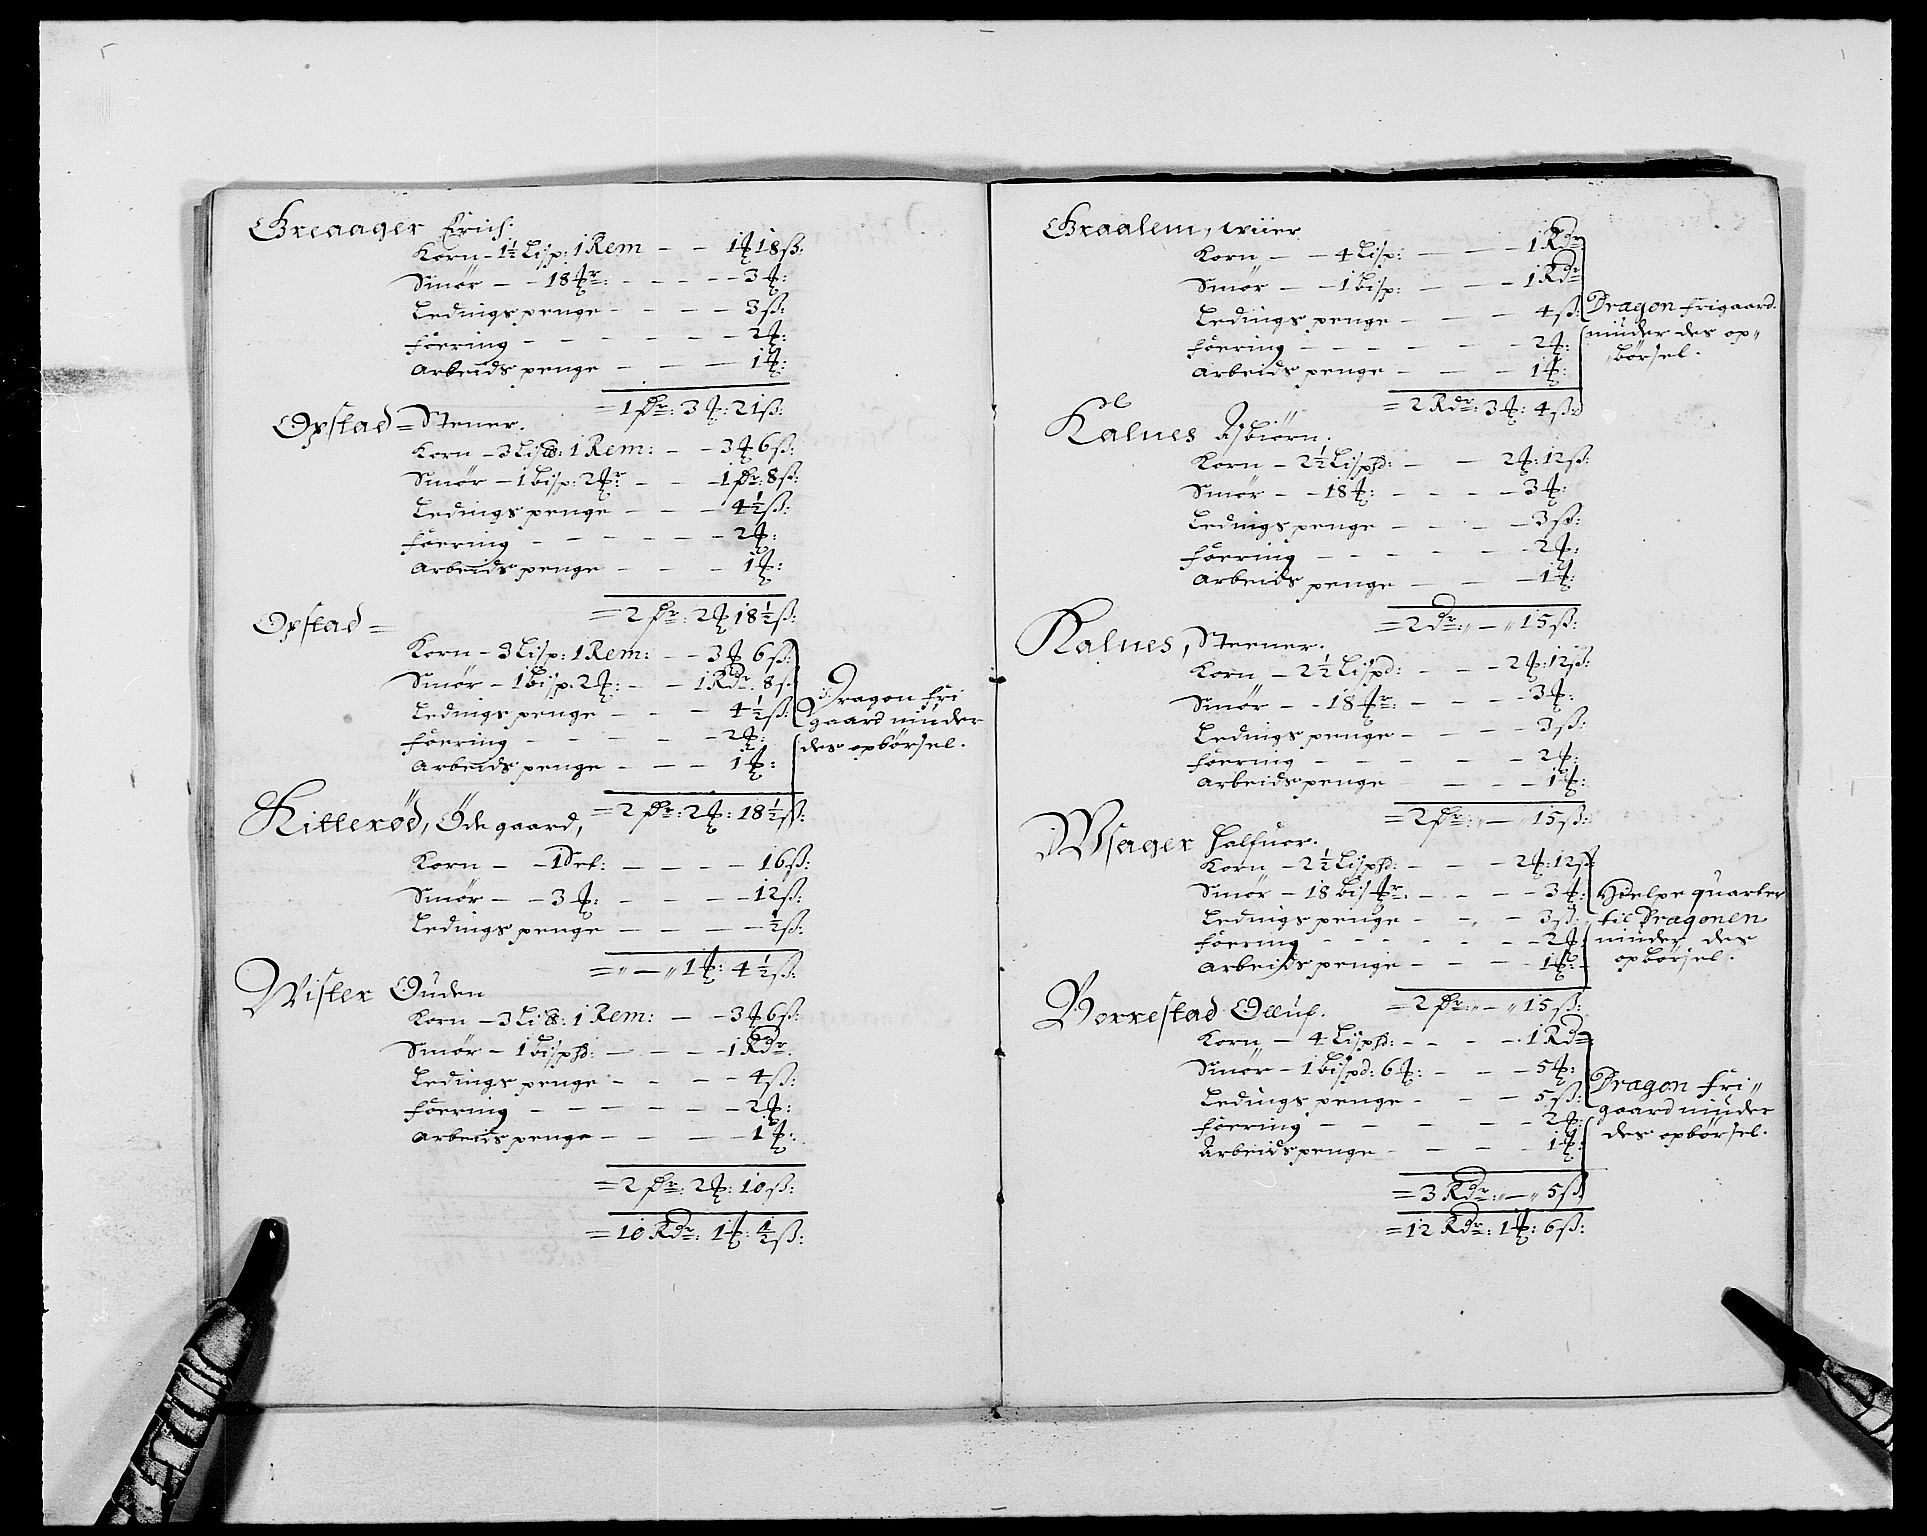 Greaager Erich.
Korn – 1½ Lisp: 1 Rem – – 1 ℔ 18 ß:
Smør – – 18 ℔r: – – – – 3 ℔:
Ledings penge – – – – 3 ß:
Foering – – – – – – 2 ℔:
Arbeids penge – – – 1 ℔:
= 1 dr: 3 ℔: 21 ß:
Opstad = Stener.
Korn – 3 Lis℔: 1 Rem: – – 3 ℔ 6 ß:
Smør – 1 Bisp: 2 ℔r – – – 1 dr: 8 ß:
Ledings penge – – – 4½ ß:
Foering – – – – – – 2 ℔:
Arbeids penge – – – 1 ℔:
= 2 dr: 2 ℔ 18½ ß:
Opstad =
Korn – 3 Lisp: 1 Rem: – – 3 ℔ 6 ß:
Smør – 1 Bisp: 2 ℔: – – 1 Rdr: 8 ß
Ledings penge – – – 4½ ß:
Foering – – – – – – 2 ℔:
Arbeids penge – – – 1 ℔:
Dragon fri
gaard minder
des opbørsel.
= 2 dr: 2 ℔: 18½ ß:
Kitterød, Öde gaard,
Korn – – 1 Set: – – – – 16 ß:
Smør – – 3 ℔: – – – – 12 ß:
Ledings penge – – – – ½ ß:
= „ – „ 1 ℔: 4½ ß:
Wister Ouden
Korn – 3 Lis℔: 1 Rem: – – 3 ℔ 6 ß:
Smør – 1 Bisphd: – – – – 1 Rdr.
Ledings penge – – – – 4 ß:
Foering – – – – – – 2 ℔:
Arbeids penge – – – – 1 ℔:
= 2 dr: 2 ℔: 10 ß:
= 10 Rdr: 1 ℔: ½ ß:
Graalem, wiier
Korn – – 4 Lisp: – – – 1 Rdr
Smør – – 1 Bisp: – – – 1 Rdr
Ledings penge – – – 4 ß:
Foering – – – – – – 2 ℔:
Arbeids penge – – – 1 ℔:
Dragon frigaard.
minder des op„
„börsel.
= 2 Rdr: 3 ℔: 4 ß:
Kalnes Asbiørn.
Korn – 2½ Lisphd: – – 2 ℔: 12 ß:
Smør – – 18 ℔: – – – – 3 ℔:
Ledings penge – – – – 3 ß:
Foering – – – – – – 2 ℔:
Arbeids penge – – – 1 ℔:
= 2 dr: „ – „ 15 ß:
Kalnes, Steener.
Korn – 2½ Lispd: – – – 2 ℔: 12 ß:
Smør – – 18 ℔r: – – – – 3 ℔:
Ledings penge – – – – 3 ß:
Foering – – – – – – 2 ℔:
Arbeids penge – – – 1 ℔:
= 2 dr: „ – „ 15 ß:
Wsager Halfuor.
Korn – 2½ Lisphd: – – – 2 ℔: 12 ß
Smør – 18 Bis℔r: – – – – 3 ℔:
Ledings penge – – – 3 ß:
Foering – – – – – – 2 ℔
Arbeids penge – – – – 1 ℔: –
Hielpe quarter
til Dragonen
minder des
opbørsel.
= 2 dr: „ – „ 15 ß:
Borrestad Olluf.
Korn – 4 Lisphd: – – – – 1 Rdr
Smør – 1 Bispd: 6 ℔: – – – 5 ℔:
Ledings penge – – – 5 ß:
Foering – – – – – – 2 ℔:
Arbeids penge – – – – 1 ℔:
Dragon fri„
gaard minder
des opbørsel.
= 3 Rdr: „ – „ 5 ß
= 12 Rdr: 1 ℔: 6 ß: